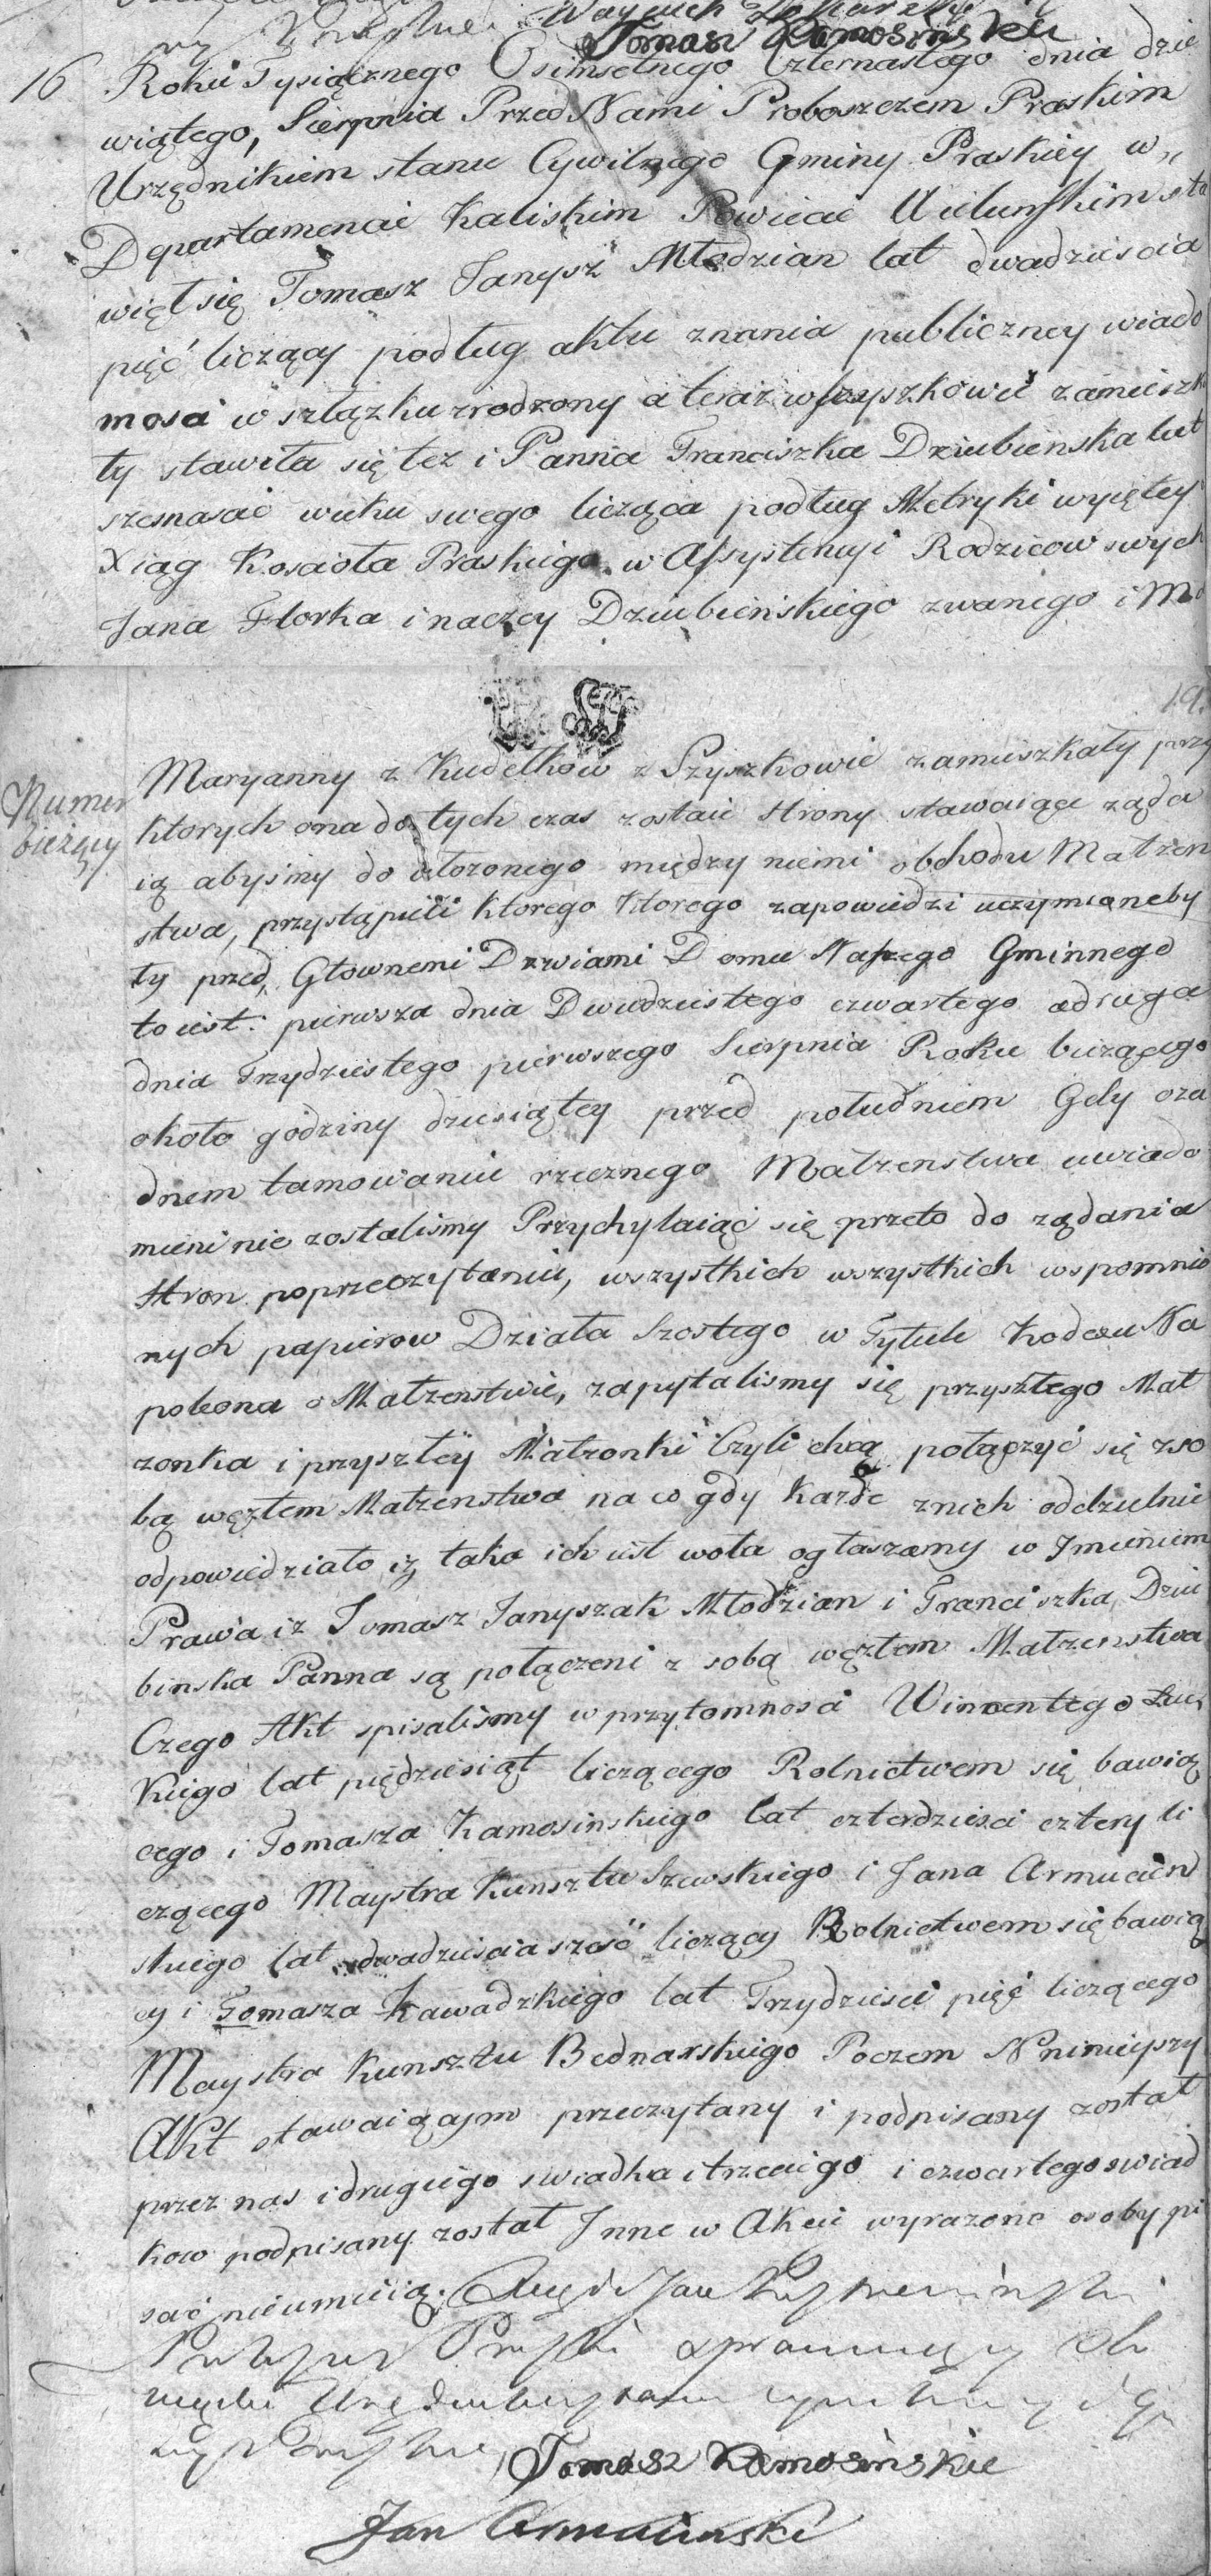 Tomasz Kamosinskie
16 Roku Tysiącznego Osimsetnego Czternastego dnia dzie
wiątego, Sierpnia Przed Nami Proboszczem Praskim
Urzędnikiem stanu Cywilnego Gminy Praskiey w„
Departamencie Kaliskim Powiecie Wielunskim sta
wieł się Tomasz Janysz Młodzian lat dwadziescia
pięć liczący podług aktu znania publiczney wiado
mosci w szlązku zrodzony a teraz w Szyszkowie zamieszka
ły stawiła się też i Panna Franciszka Dziubienska lat
szesnascie wieku swego licząca podług Metryki wyciętey
Xiąg Koscioła Praskiego w Assystencyi Rodzicow swych
Jana Florka inaczey Dziubieńskiego zwanego i Ma
19
Numer
bieżący
Maryanny z Kudełkow z Szyszkowie zamieszkały przy
ktorych ona do tych czas zostaie Strony stawaiące żąda
ią abysmy do ułożonego między niemi obchodu Małżen
stwa, przystąpili ktorego ktorego zapowiedzi uczynione by
ły przed Głownemi Drzwiami Domu Naszego Gminnego
to iest: pierwsza dnia Dwudziestego czwartego a druga
dnia Trzydziestego pierwszego Sierpnia Roku bieżącego
około godziny dziesiątey przed południem Gdy oża
dnem tamowaniu rzecznego Małzenstwa uwiado
mieni nie zostalismy Przychylaiąc się przeto do ządania
Stron poprzeczytaniu, wszystkich wszystkich wspomnio
nych papierow Działa Szostego w Tytule Kodexu Na
poleona o Małzenstwie, zapytalismy się przyszłego Mał
zonka i przyszłey Małzonki Czyli chcą połączyć się zso
bą węzłem Małzenstwa na co gdy Kazde znich oddzielnie
odpowiedziało iż taka ich iest wola ogłaszamy w Jmieniem
Prawa iz Tomasz Janyszak Młodzian i Franciszka Dziu
binska Panna są połączeni z sobą węzłem Małzenstwa
Czego Akt spisalismy w przytomnosci Wincentego
kiego lat pięćdziesiąt liczącego Rolnictwem się bawią
cego i Tomasza Kamosinskiego lat czterdziesci cztery li
czącego Maystra Kunsztu Szewskiego i Jana Armucien
skiego lat dwadziescia szesć liczący Rolnictwem się bawią
cy i Tomasza Zawadzkiego lat Trzydziesci pięć liczącego
Maystra Kunsztu Bednarskiego Poczem Ninieyszy
Akt stawaiącym przeczytany i podpisany został
przez nas i drugiego swiadka i trzeciego i czwartego swiad
kow podpisany został Jnne w Akcie wyrazone osoby pi
sać nieumieią.
Tomasz Kamosinskie
Jan Armucinski